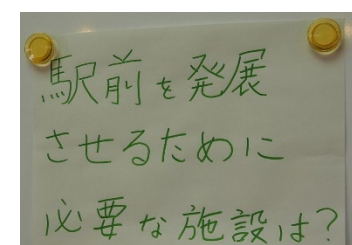 駅前を発展
させるために
必要な施設は?